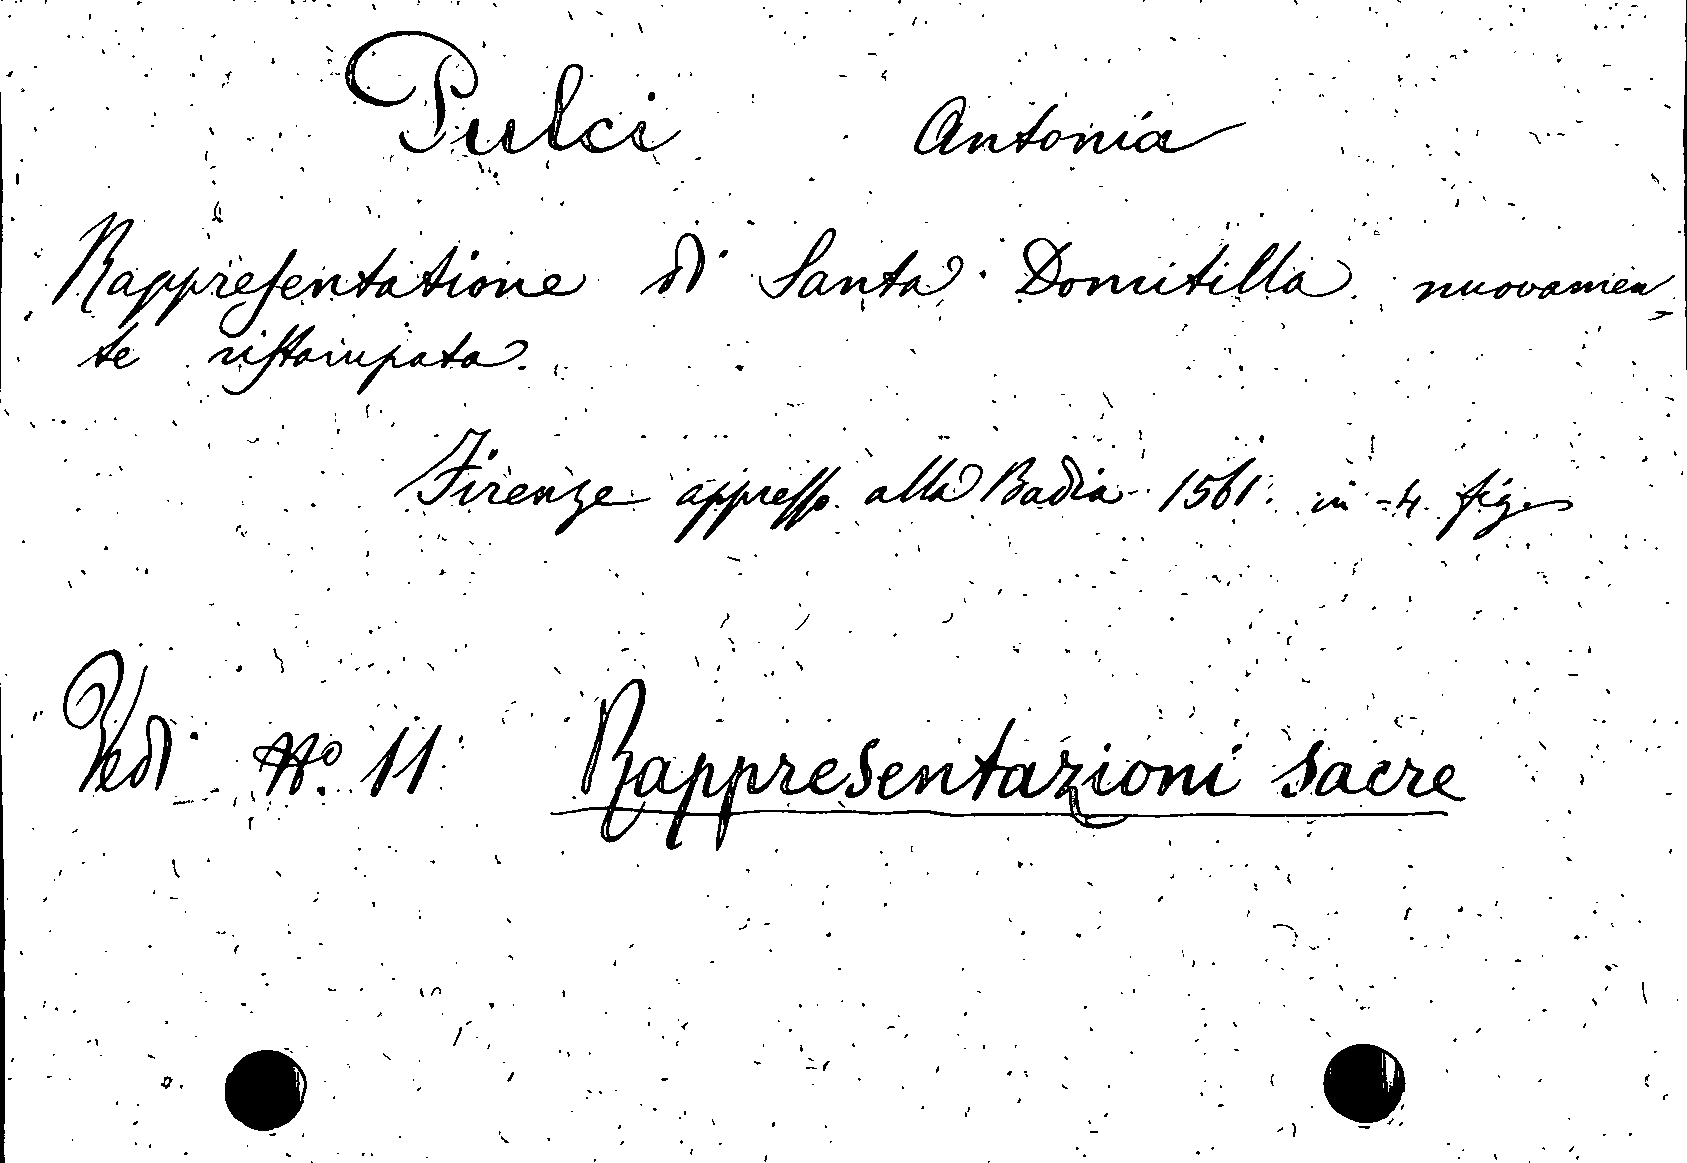 Pulci Antonia
Rappresentatione di Santa Domitilla nuovamen-
te ristampata.
Firenze appresso alla Badia 1561. in-4. fig.
Vedi No. 11 Rappresentazioni sacre